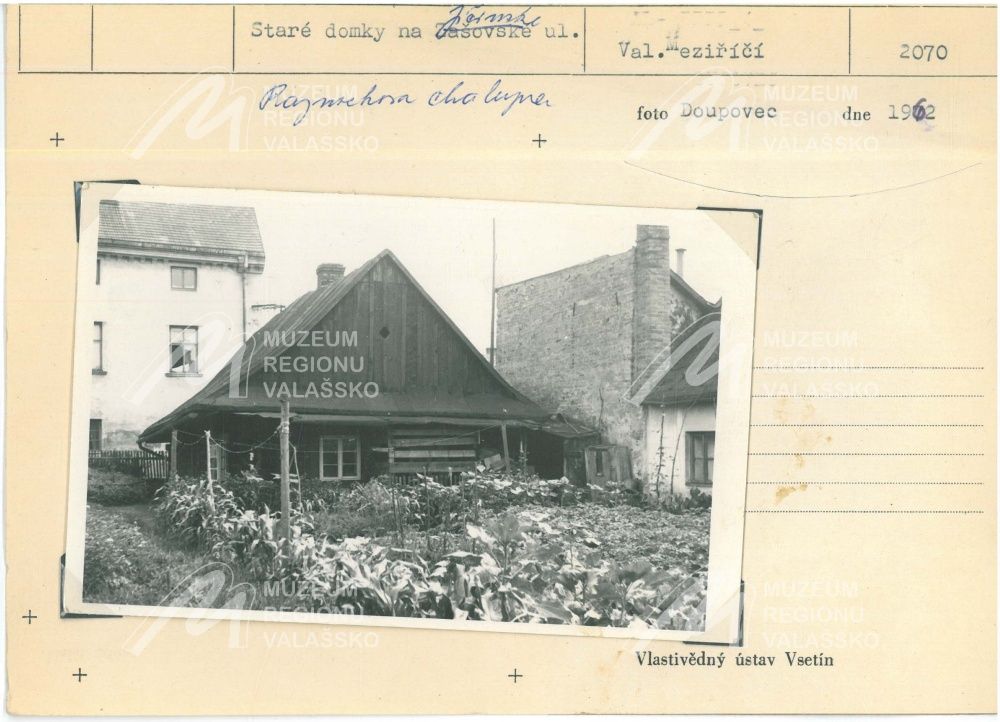 Staré domky na Zašovské ul.
Jičínske
Val. Meziříčí
2070
chalupa
foto Doupovec dne 1962
Vlastivědný ústav Vsetín
MUZEUM
REGIONU
VALAŠSKO
MUZEUM
REGIONU
VALAŠSKO
MUZEUM
REGIONU
VALAŠSKO
MUZEUM
REGIONU
VALAŠSKO
MUZEUM
REGIONU
VALAŠSKO
MUZEUM
REGIONU
VALAŠSKO